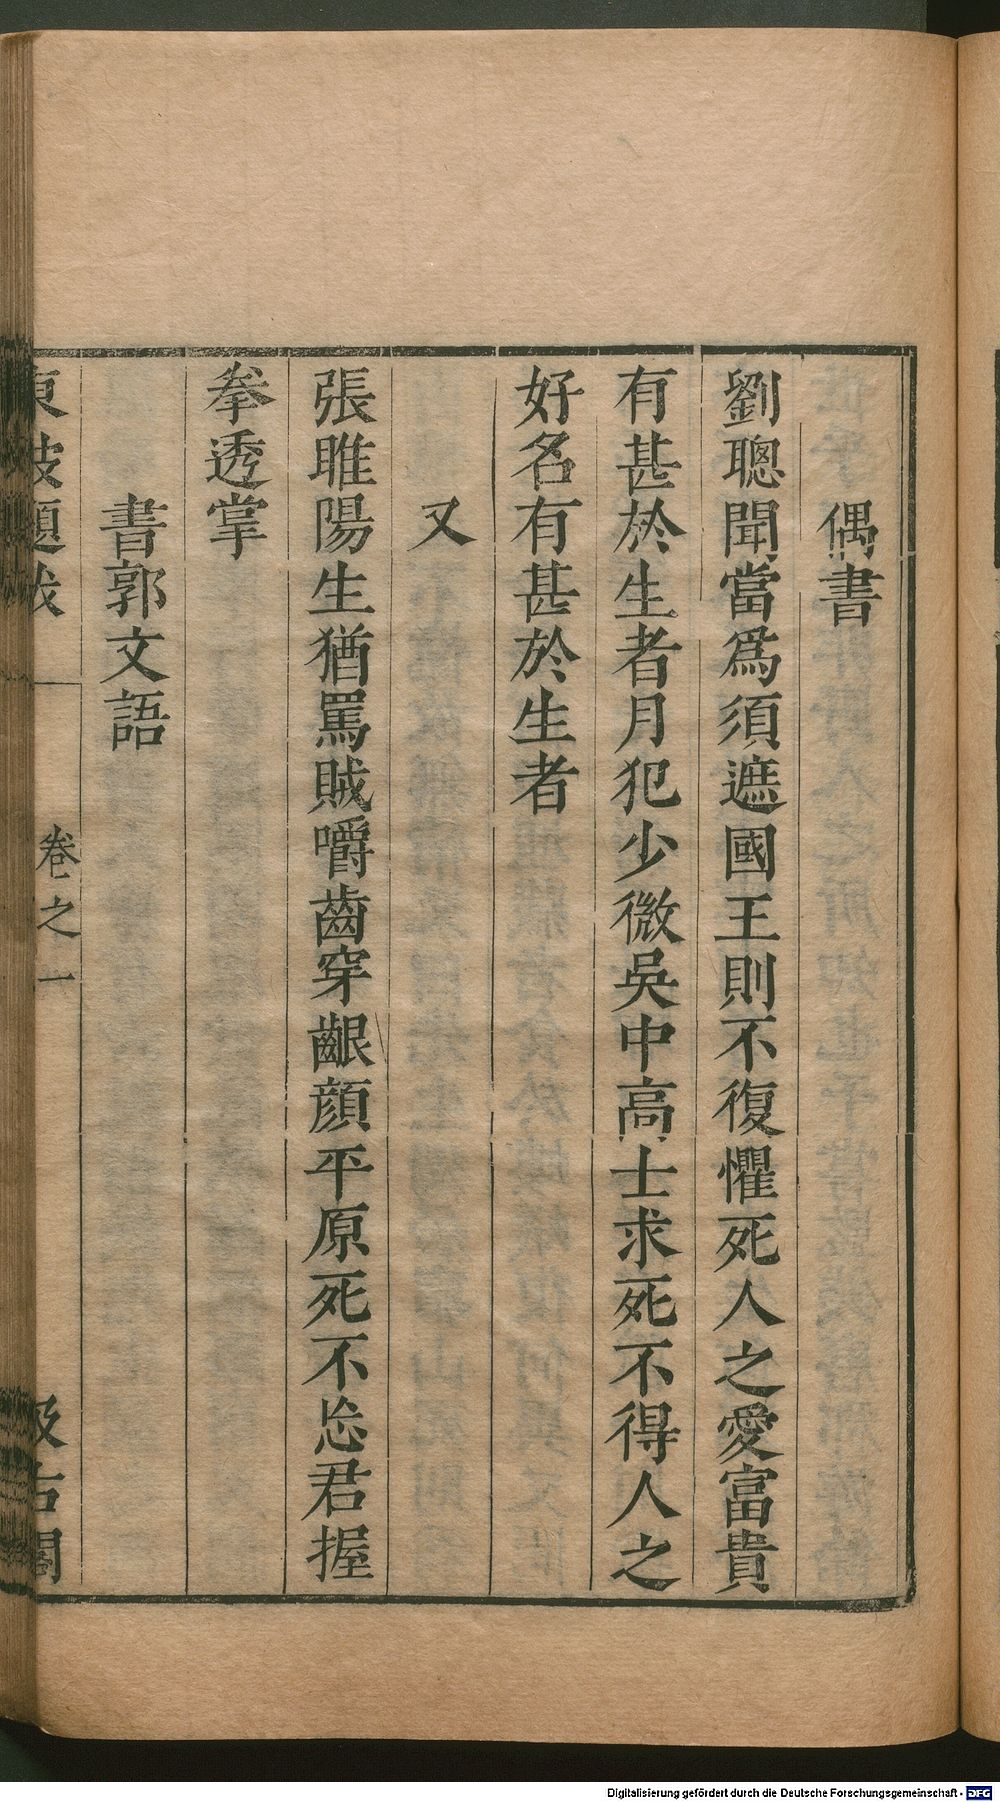 偶書
劉聰聞當爲須遮國王則不復懼死人之愛富貴
有甚於生者月犯少微吳中高士求死不得人之
好名有甚於生者
又
張睢陽生猶罵賊嚼齒穿齦顔平原死不忘君握
拳透掌
書郭文語
東坡題䟦
卷之一
汲古閣
Digitalisierung gefördert durch die Deutsche Forschungsgemeinschaft - DFG